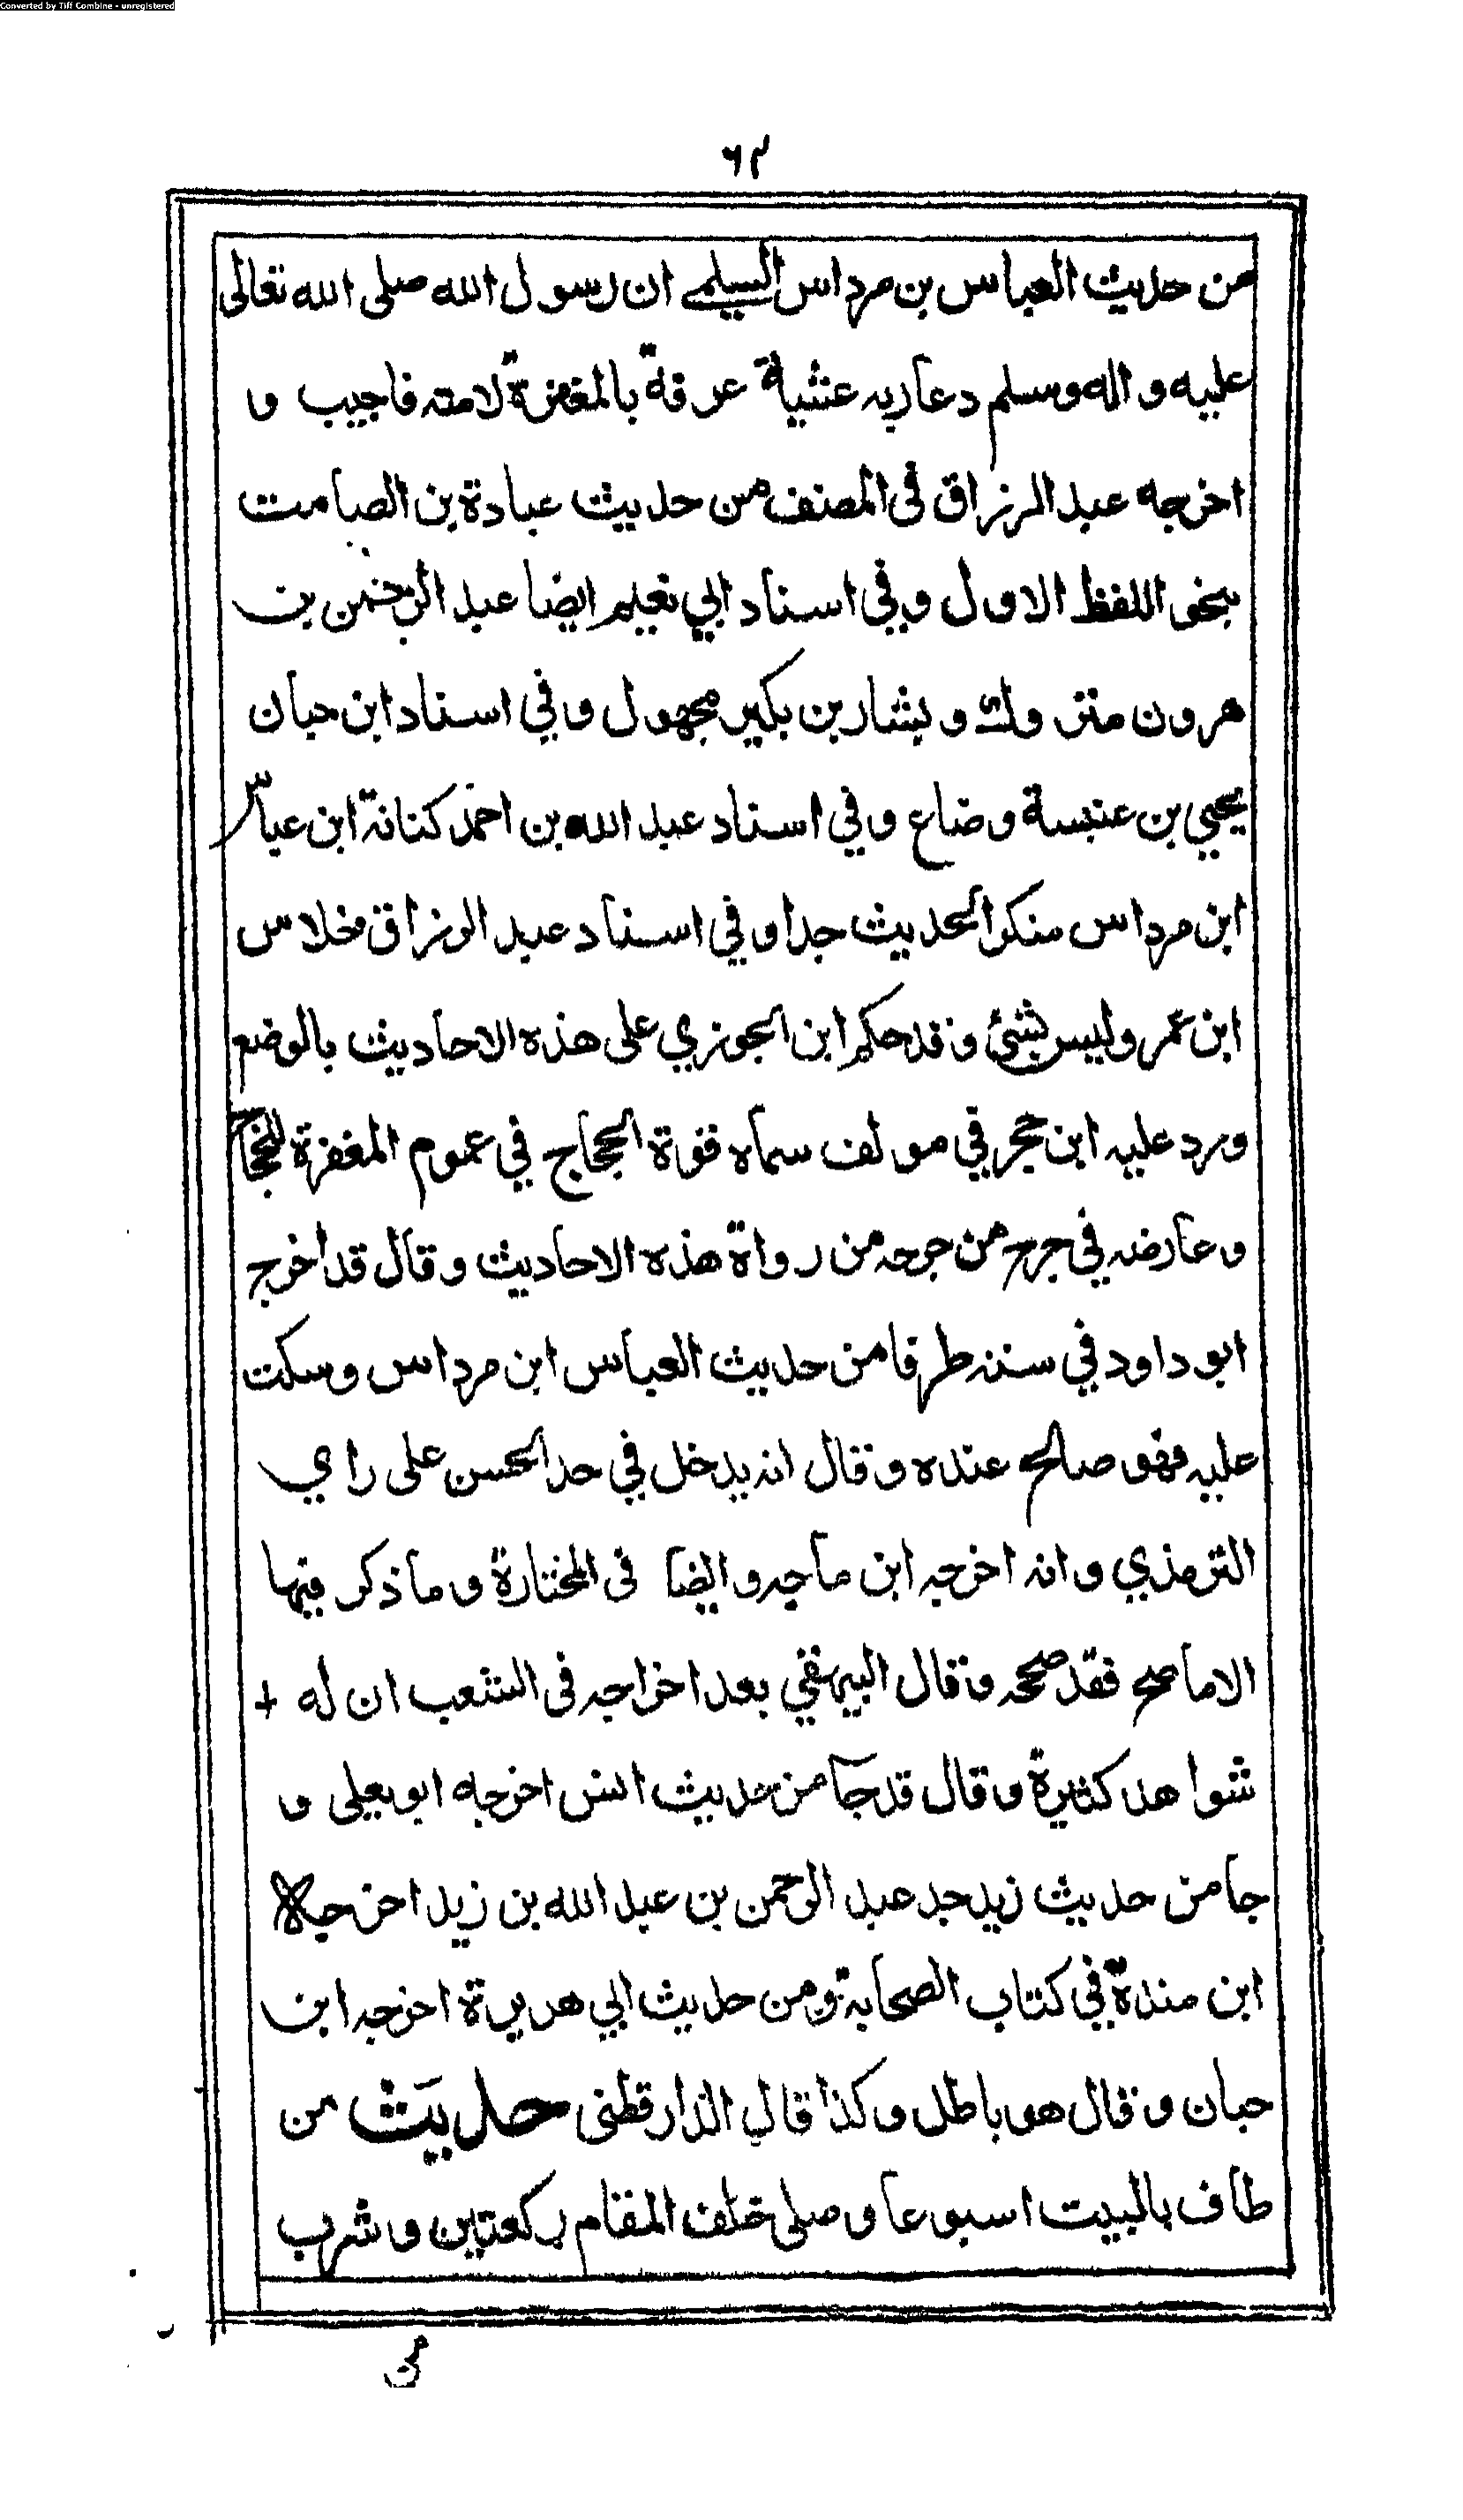 Converted by Tiff Combine - unregistered
٦٢
من حديث العباس بن مرداس السلمي ان رسول الله صلى الله تعالى
عليه و اله وسلم دعا ربه عشية عرفة بالمغفرة لامته فاجيب و
اخرجه عبد الرزاق في المصنف من حديث عبادة بن الصامت
بنحو اللفظ الاول وفي اسناد ابي نعيم ايضا عبد الرحمن بن
هرون متروك و بشار بن بكير مجهول وفي اسناد ابن حبان
يحيي بن عنبسة وضاع وفي اسناد عبد الله بن احمد كنانة ابن عباس
ابن مرداس منكر الحديث جدا وفي اسناد عبد الرزاق خلاس
ابن عمر وليس بشئ وقد حكم ابن الجوزي على هذه الاحاديث بالوضع
ورد عليه ابن حجر في مولف سماه قوة الحجاج في عموم المغفرة للحجاج
وعارضه في جرح من جرحه من رواة هذه الاحاديث وقال قد اخرج
ابو داود في سننه طرفا من حديث العباس ابن مرداس وسكت
عليه فهو صالح عنده وقال انه يدخل في حد الحسن على راي
الترمذي وانه اخرجه ابن ماجه والضيا في المختارة وما ذكر فيها
الا ما صح فقد صححه وقال البيهقي بعد اخراجه في الشعب ان له
شواهد كثيرة وقال قد جآ من حديث انس اخرجه ابو يعلى و
جا من حديث زيد جد عبد الرحمن بن عبد الله بن زيد اخرجه
ابن مندة في كتاب الصحابة ومن حديث ابي هريرة اخرجه ابن
حبان وقال هو باطل وكذا قال الدارقطنى حديث من
طاف بالبيت اسبوعا وصلى خلف المقام ركعتين وشرب
من